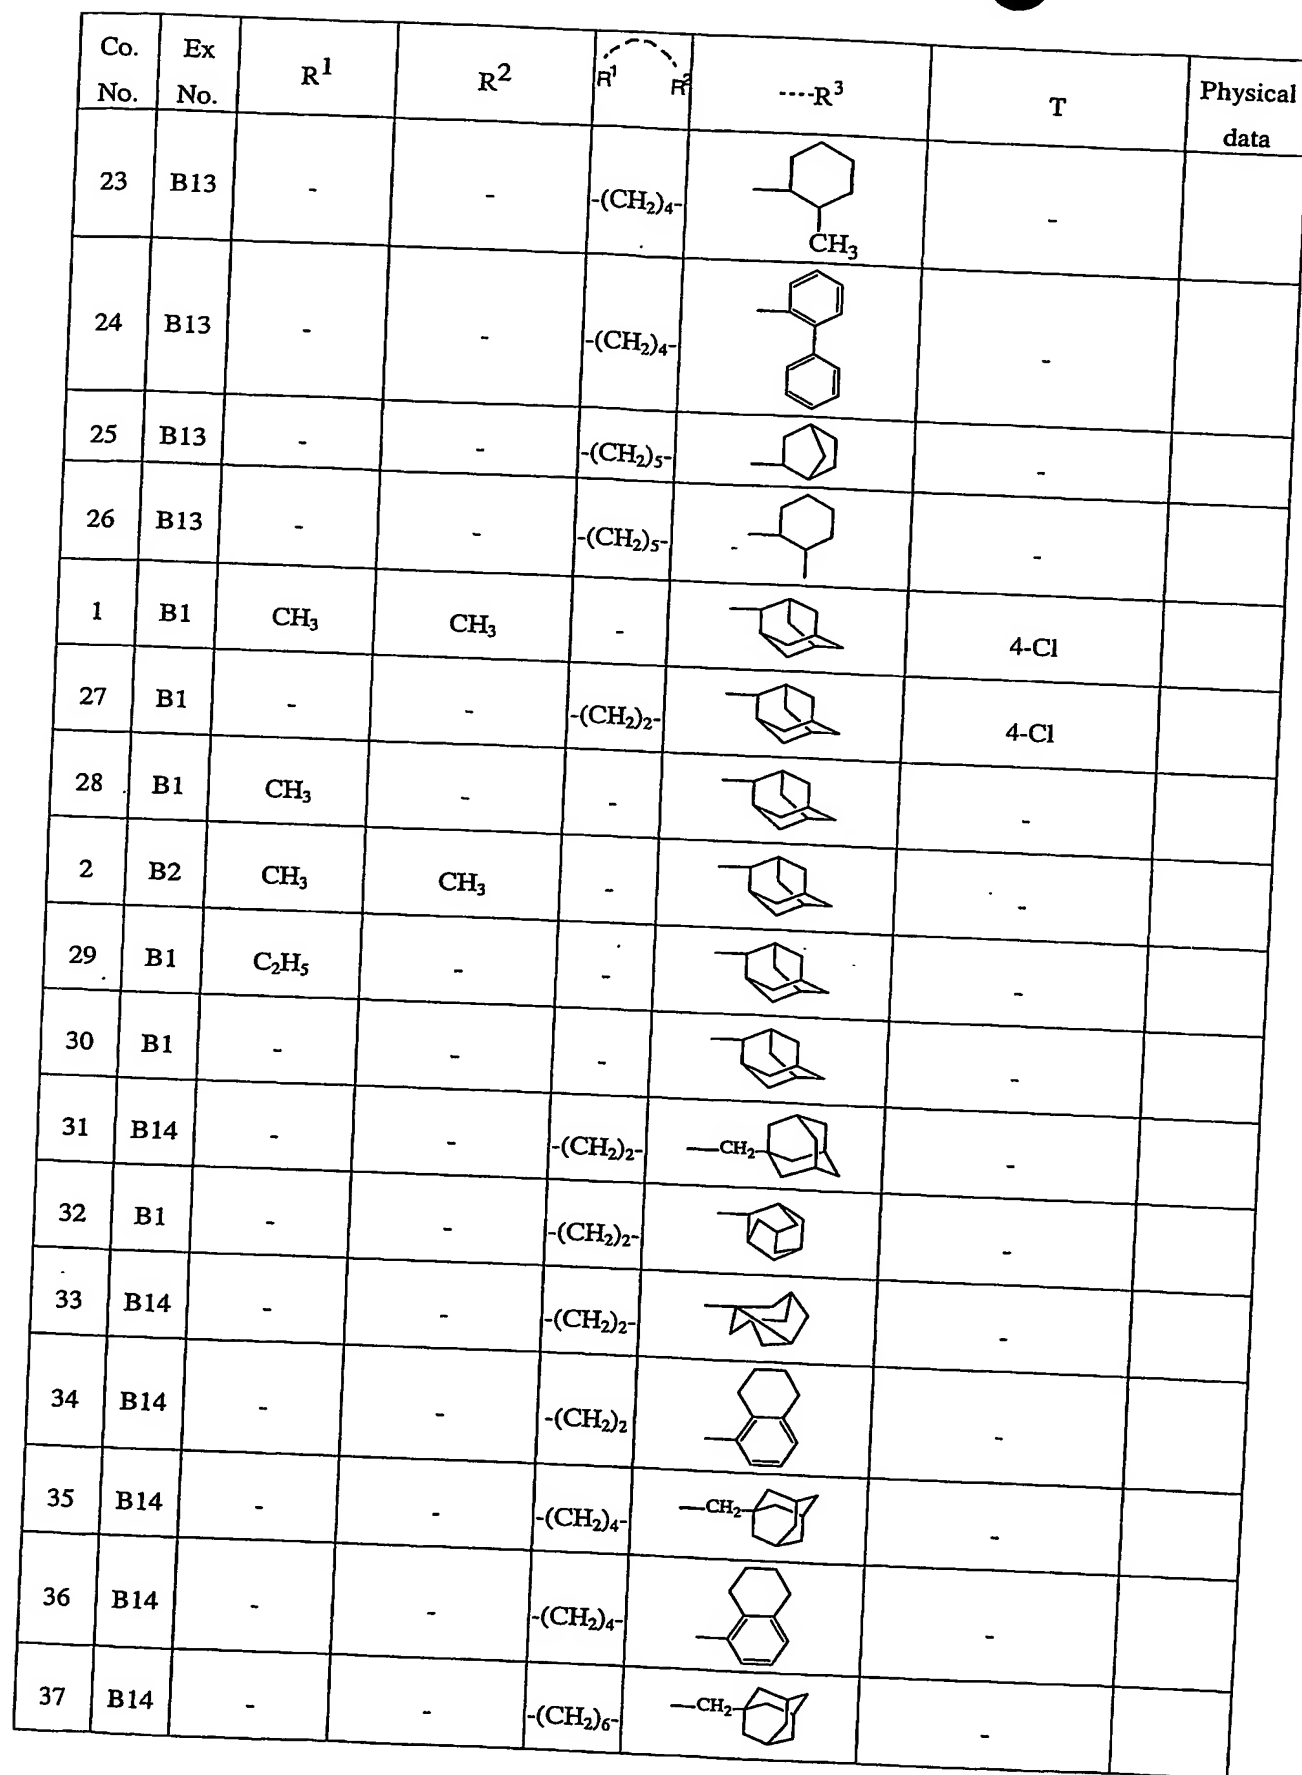 Co. No. Ex No. R¹ R² R¹ R² ----R³ T Physical data
23 B13 - - -(CH₂)₄- CH₃ -
24 B13 - - -(CH₂)₄- -
25 B13 - - -(CH₂)₅- -
26 B13 - - -(CH₂)₅- -
1 B1 CH₃ CH₃ - 4-Cl
27 B1 - - -(CH₂)₂- 4-Cl
28 B1 CH₃ - - -
2 B2 CH₃ CH₃ - -
29 B1 C₂H₅ - - -
30 B1 - - - -
31 B14 - - -(CH₂)₂- —CH₂ -
32 B1 - - -(CH₂)₂- -
33 B14 - - -(CH₂)₂- -
34 B14 - - -(CH₂)₂ -
35 B14 - - -(CH₂)₄- —CH₂ -
36 B14 - - -(CH₂)₄- -
37 B14 - - -(CH₂)₆- —CH₂ -